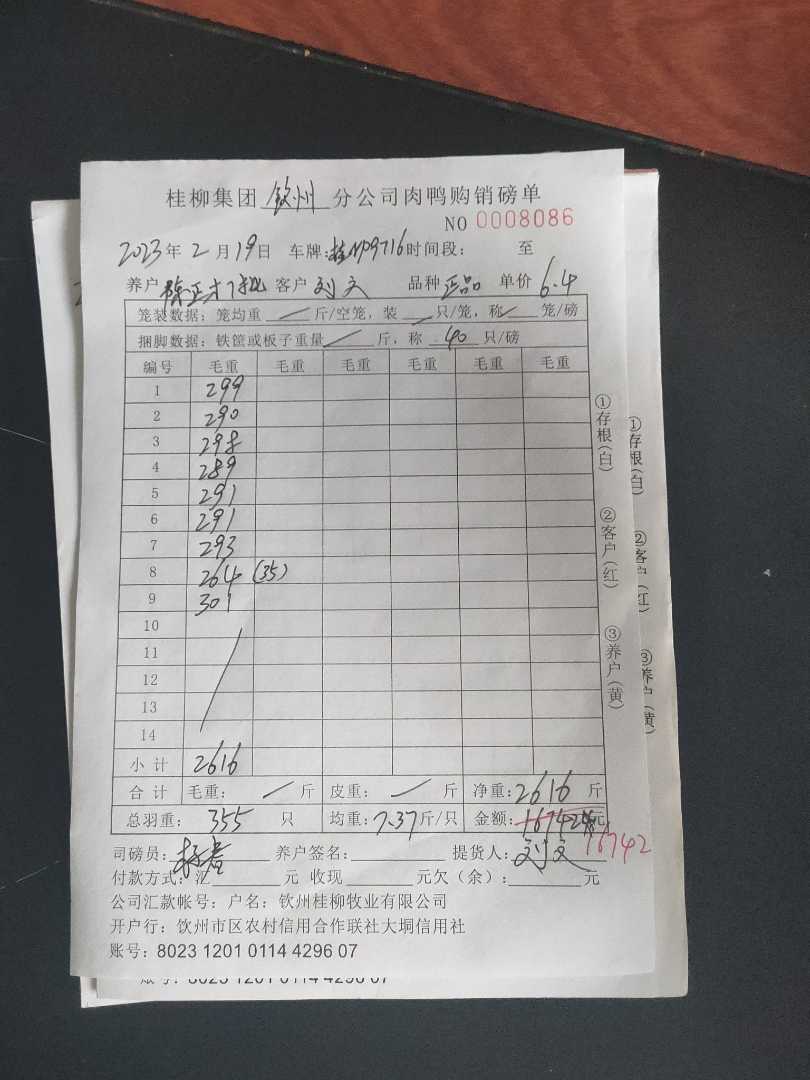 桂柳集团 钦州 分公司肉鸭购销磅单
NO 0008086
2023年2月19日 车牌:桂N09716时间段: 至
养户 陈正才 客户 刘文 品种 正品 单价 6.4
笼装数据: 笼均重 / 斤/空笼, 装 / 只/笼, 称 / 笼/磅
捆脚数据: 铁筐或板子重量 / 斤, 称 40 只/磅
编号 毛重 毛重 毛重 毛重 毛重 毛重
1 299
2 290
3 298
4 289
5 291
6 291
7 293
8 264 (35)
9 301
10
11
12
13
14
小计 2616
合计 毛重: / 斤 皮重: / 斤 净重: 2616 斤
总羽重: 355 只 均重: 7.37斤/只 金额: 16742.4元
16742
司磅员: 养户签名: 提货人: 刘文
付款方式: 汇 元 收现 元欠(余): 元
公司汇款帐号: 户名: 钦州桂柳牧业有限公司
开户行: 钦州市区农村信用合作联社大垌信用社
账号: 8023 1201 0114 4296 07
①存根(白) ②客户(红) ③养户(黄)
①存根(白) ②客户(红) ③养户(黄)
账号: 8023 1201 0114 4296 07